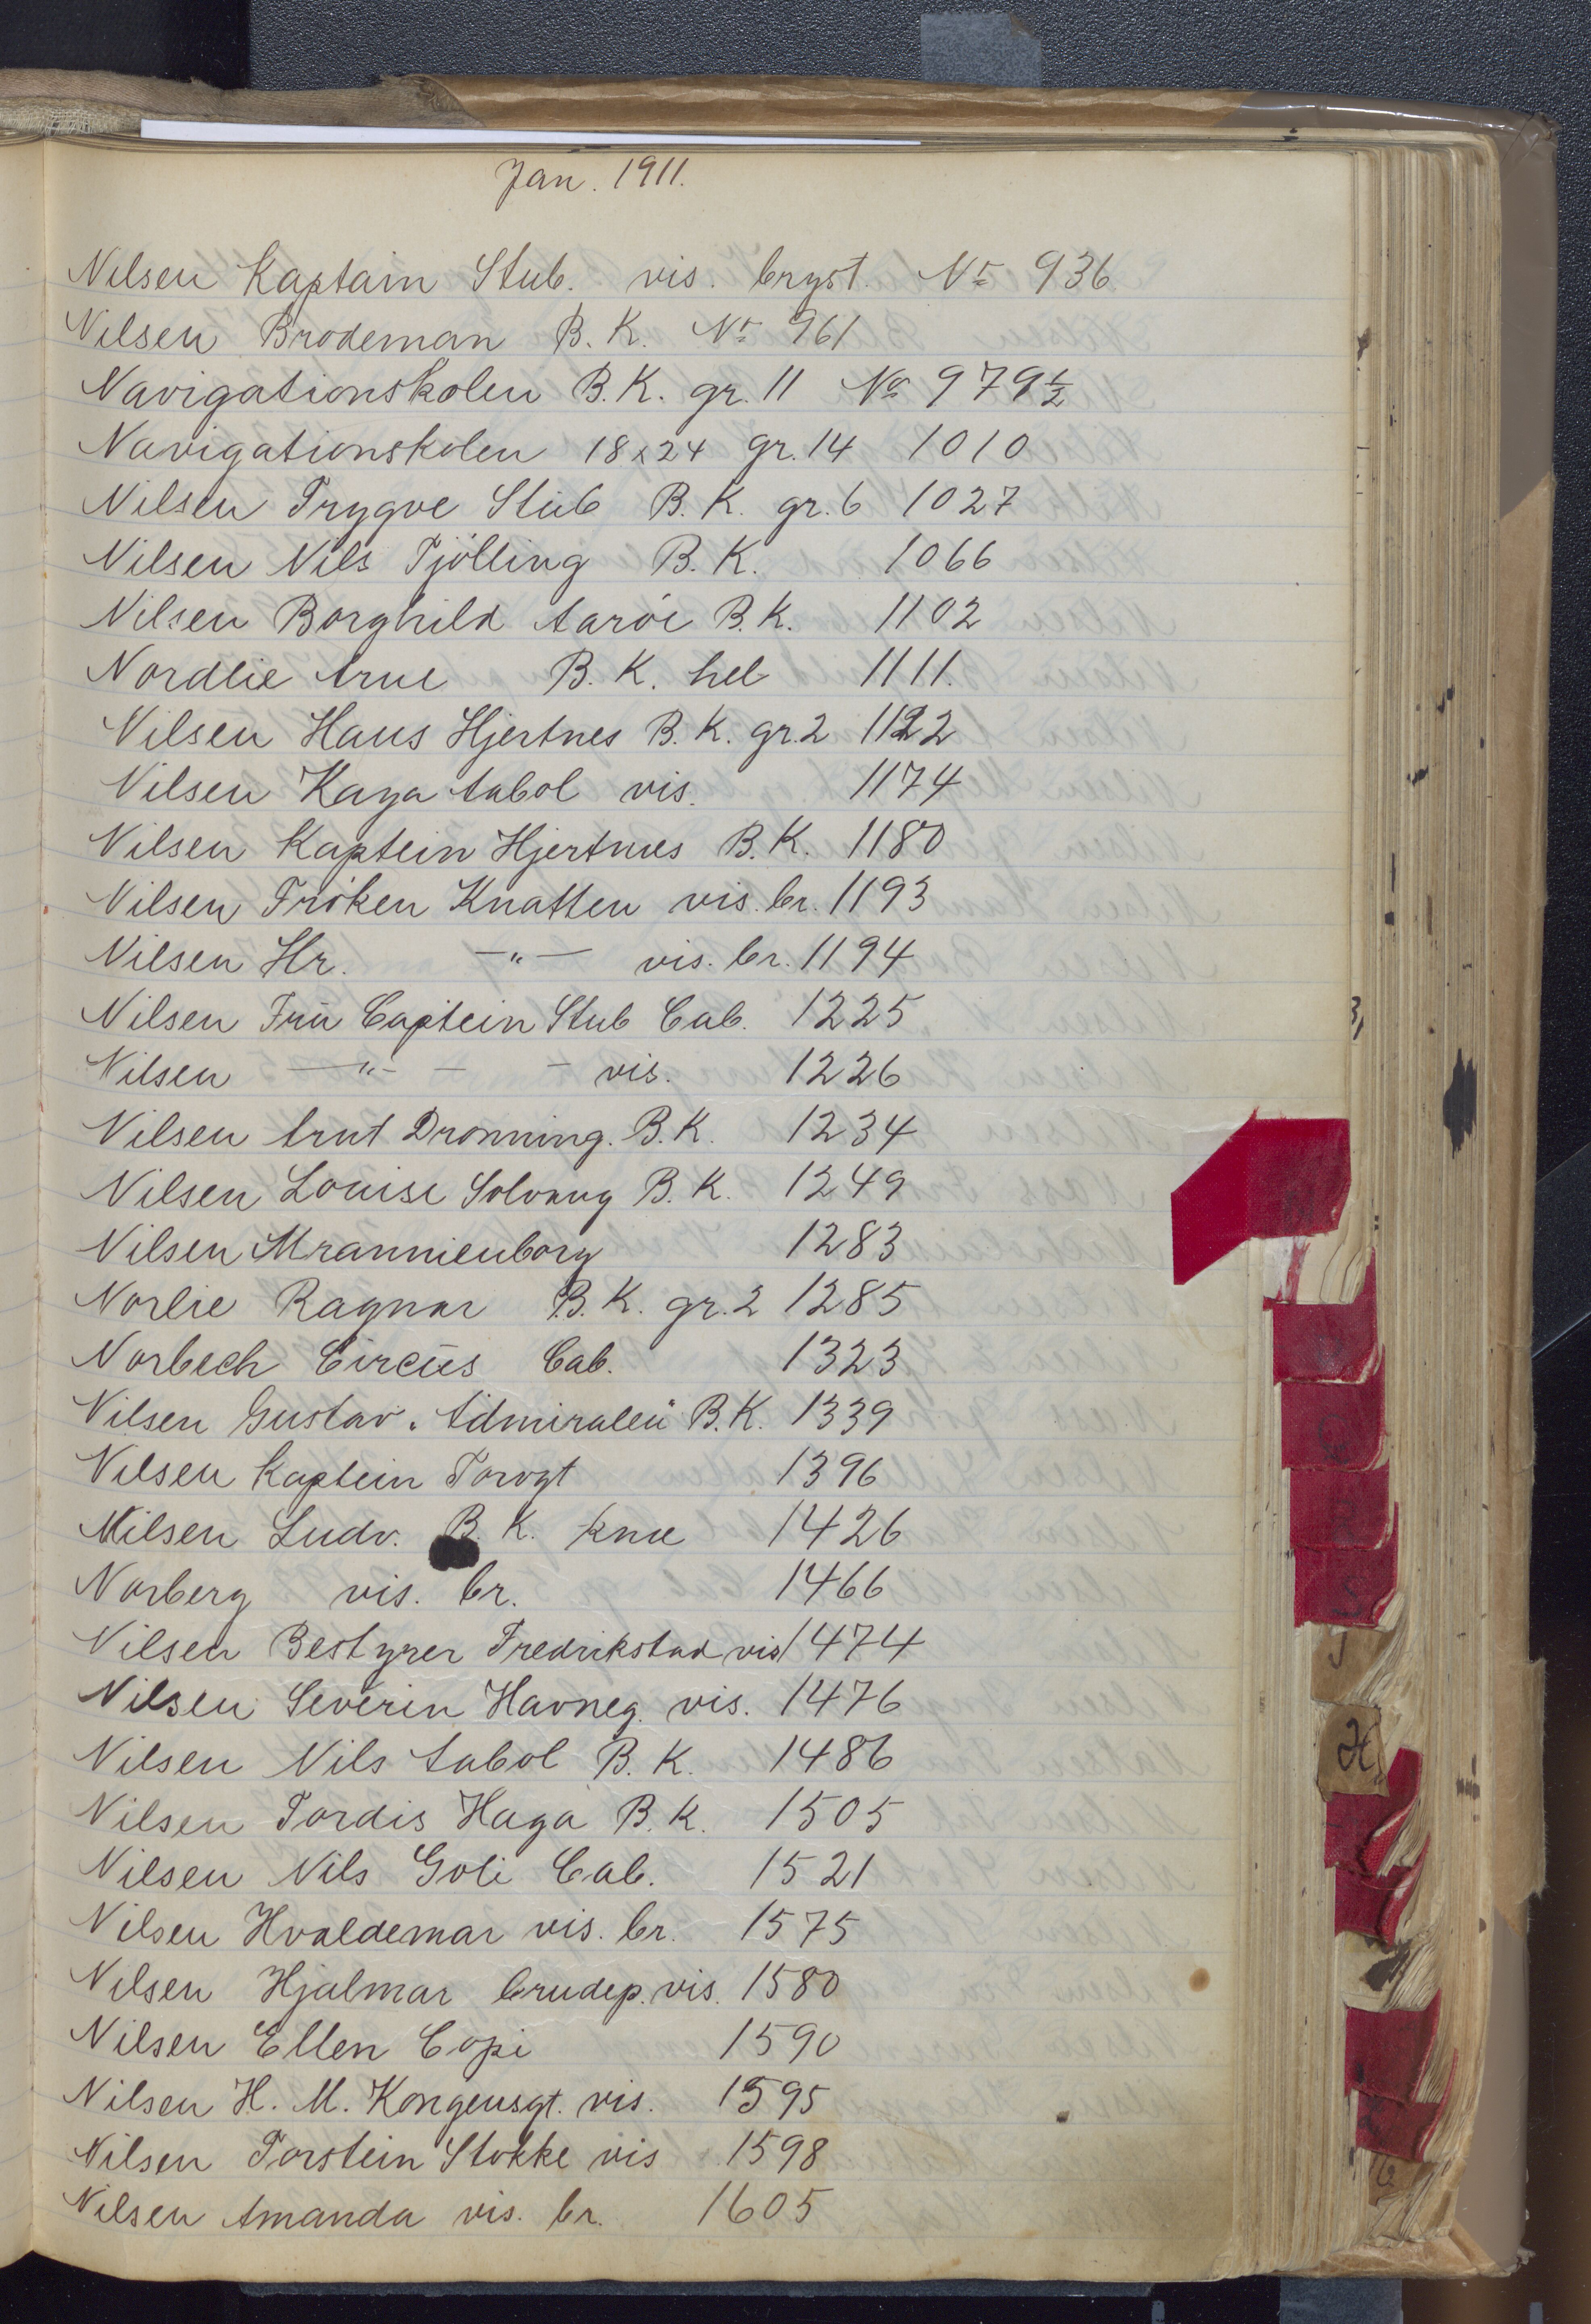 Jan. 1911.
Nilsen Kaptain Stub. vis. bryst. No 936
Nilsen Brodeman B. K. No 961
Navigationskolen B.K. gr. 11 No 979 1/2
Navigationskolen 18x24 gr. 14 1010
Nilsen Trygve Stub B. K. gr. 6 1027
Nilsen Nils Tjölling B. K. 1066
Nilsen Borghild Aaröe B.K. 1102
Nordlie Arne B. K. hel 1111.
Nilsen Hans Hjertnes B. K. gr. 2 1122
Nilsen Kaya Aabol vis. 1174
Nilsen Kaptein Hjertnes B.K. 1180
Nilsen Fröken Knatten vis. br. 1193
Nilsen Hr. —"— vis. br. 1194
Nilsen Frü Captein Stub Cab. 1225
Nilsen —"— — — vis. 1226
Nilsen Arnt Dronning. B.K. 1234
Nilsen Louise Solvang B. K. 1249
Nilsen Mrannienborg 1283
Norlie Ragnar B.K. gr. 2 1285
Norbech Circüs Cab. 1323
Nilsen Gustav. Admiralen B.K. 1339
Nilsen Kaptein Torvgt 1396
Nilsen Ludv. B. K. knæ 1426
Norberg vis. br. 1466
Nilsen Bestyrer Fredrikstad vis 1474
Nilsen Severin Havneg. vis. 1476
Nilsen Nils Aabol B. K. 1486
Nilsen Tordis Haga B. K. 1505
Nilsen Nils Goli Cab. 1521
Nilsen Hvaldemar vis. br. 1575
Nilsen Hjalmar brudep. vis. 1580
Nilsen Ellen Copi 1590
Nilsen H. M. Kongensgt. vis. 1595
Nilsen Torstein Stokke vis 1598
Nilsen Amanda vis. br. 1605
H